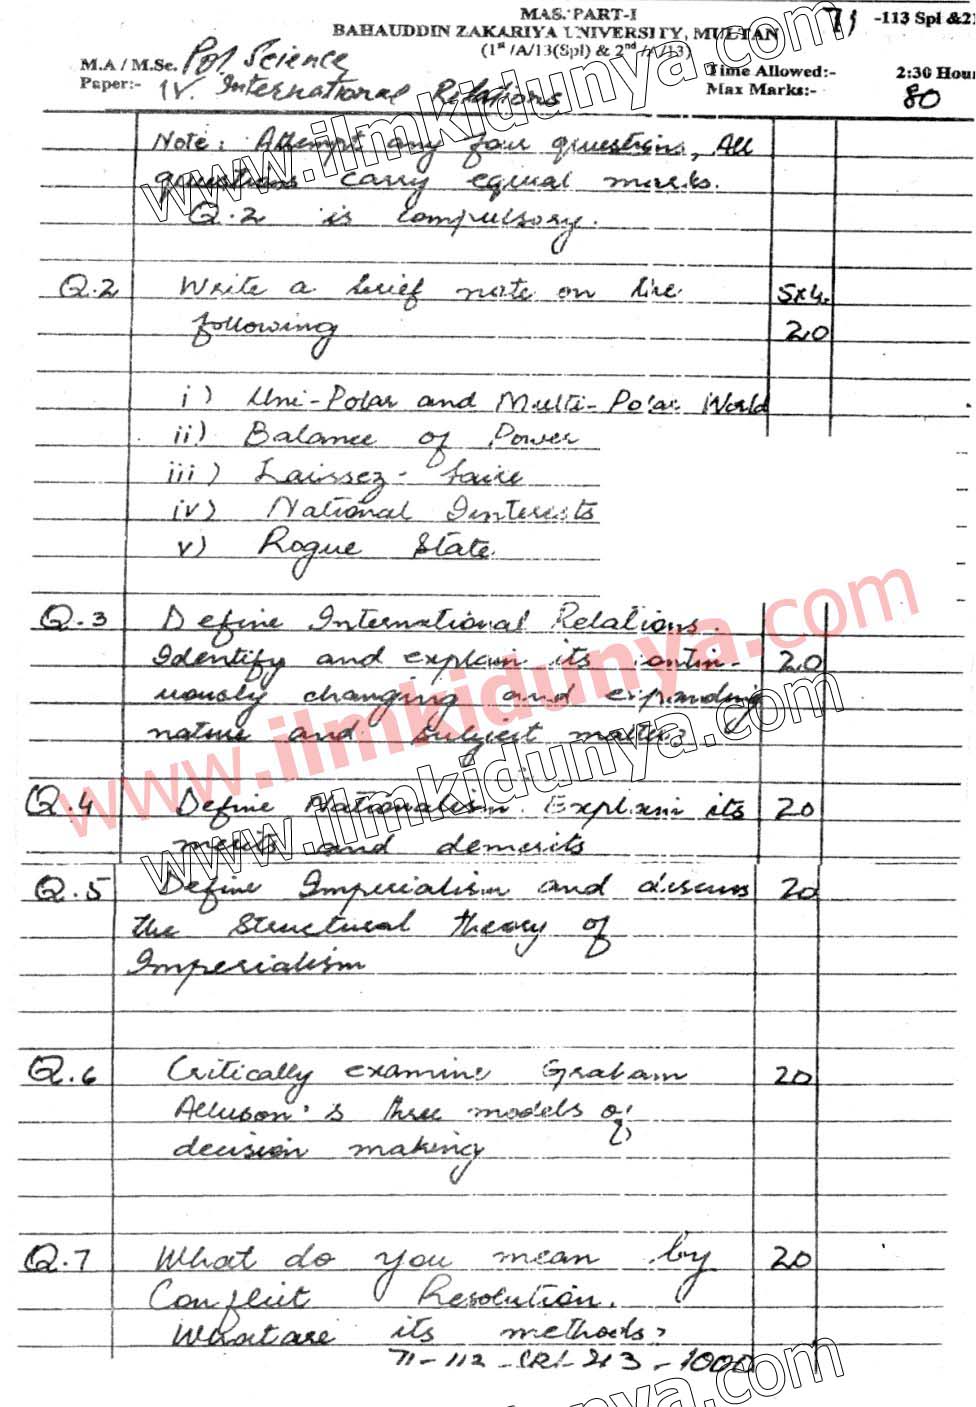 MAS. PART-I
71 -113 Spl &21
BAHAUDDIN ZAKARIYA UNIVERSITY, MULTAN
(1st /A/13(Spl) & 2nd /A/13)
M.A / M.Sc. Pol Science
Time Allowed:- 2:30 Hour
Paper:- IV. International Relations
Max Marks:- 80
Note: Attempt any four questions, All
questions carry equal marks.
Q.2 is compulsory.
Q.2 Write a brief note on the 5x4
following 20
i) Uni-Polar and Multi-Polar World
ii) Balance of Power
iii) Laissez-faire
iv) National Interests
v) Rogue State
Q.3 Define International Relations.
Identify and explain its contin- 20
uously changing and expanding
nature and subject matter.
Q.4 Define Nationalism. Explain its 20
merits and demerits
Q.5 Define Imperialism and discuss 20
the Structural theory of
Imperialism
Q.6 Critically examine Graham 20
Allison's three models of
decision making
Q.7 What do you mean by 20
Conflict Resolution.
What are its methods?
71-112- -213-1000
www.ilmkidunya.com
www.ilmkidunya.com
www.ilmkidunya.com
www.ilmkidunya.com